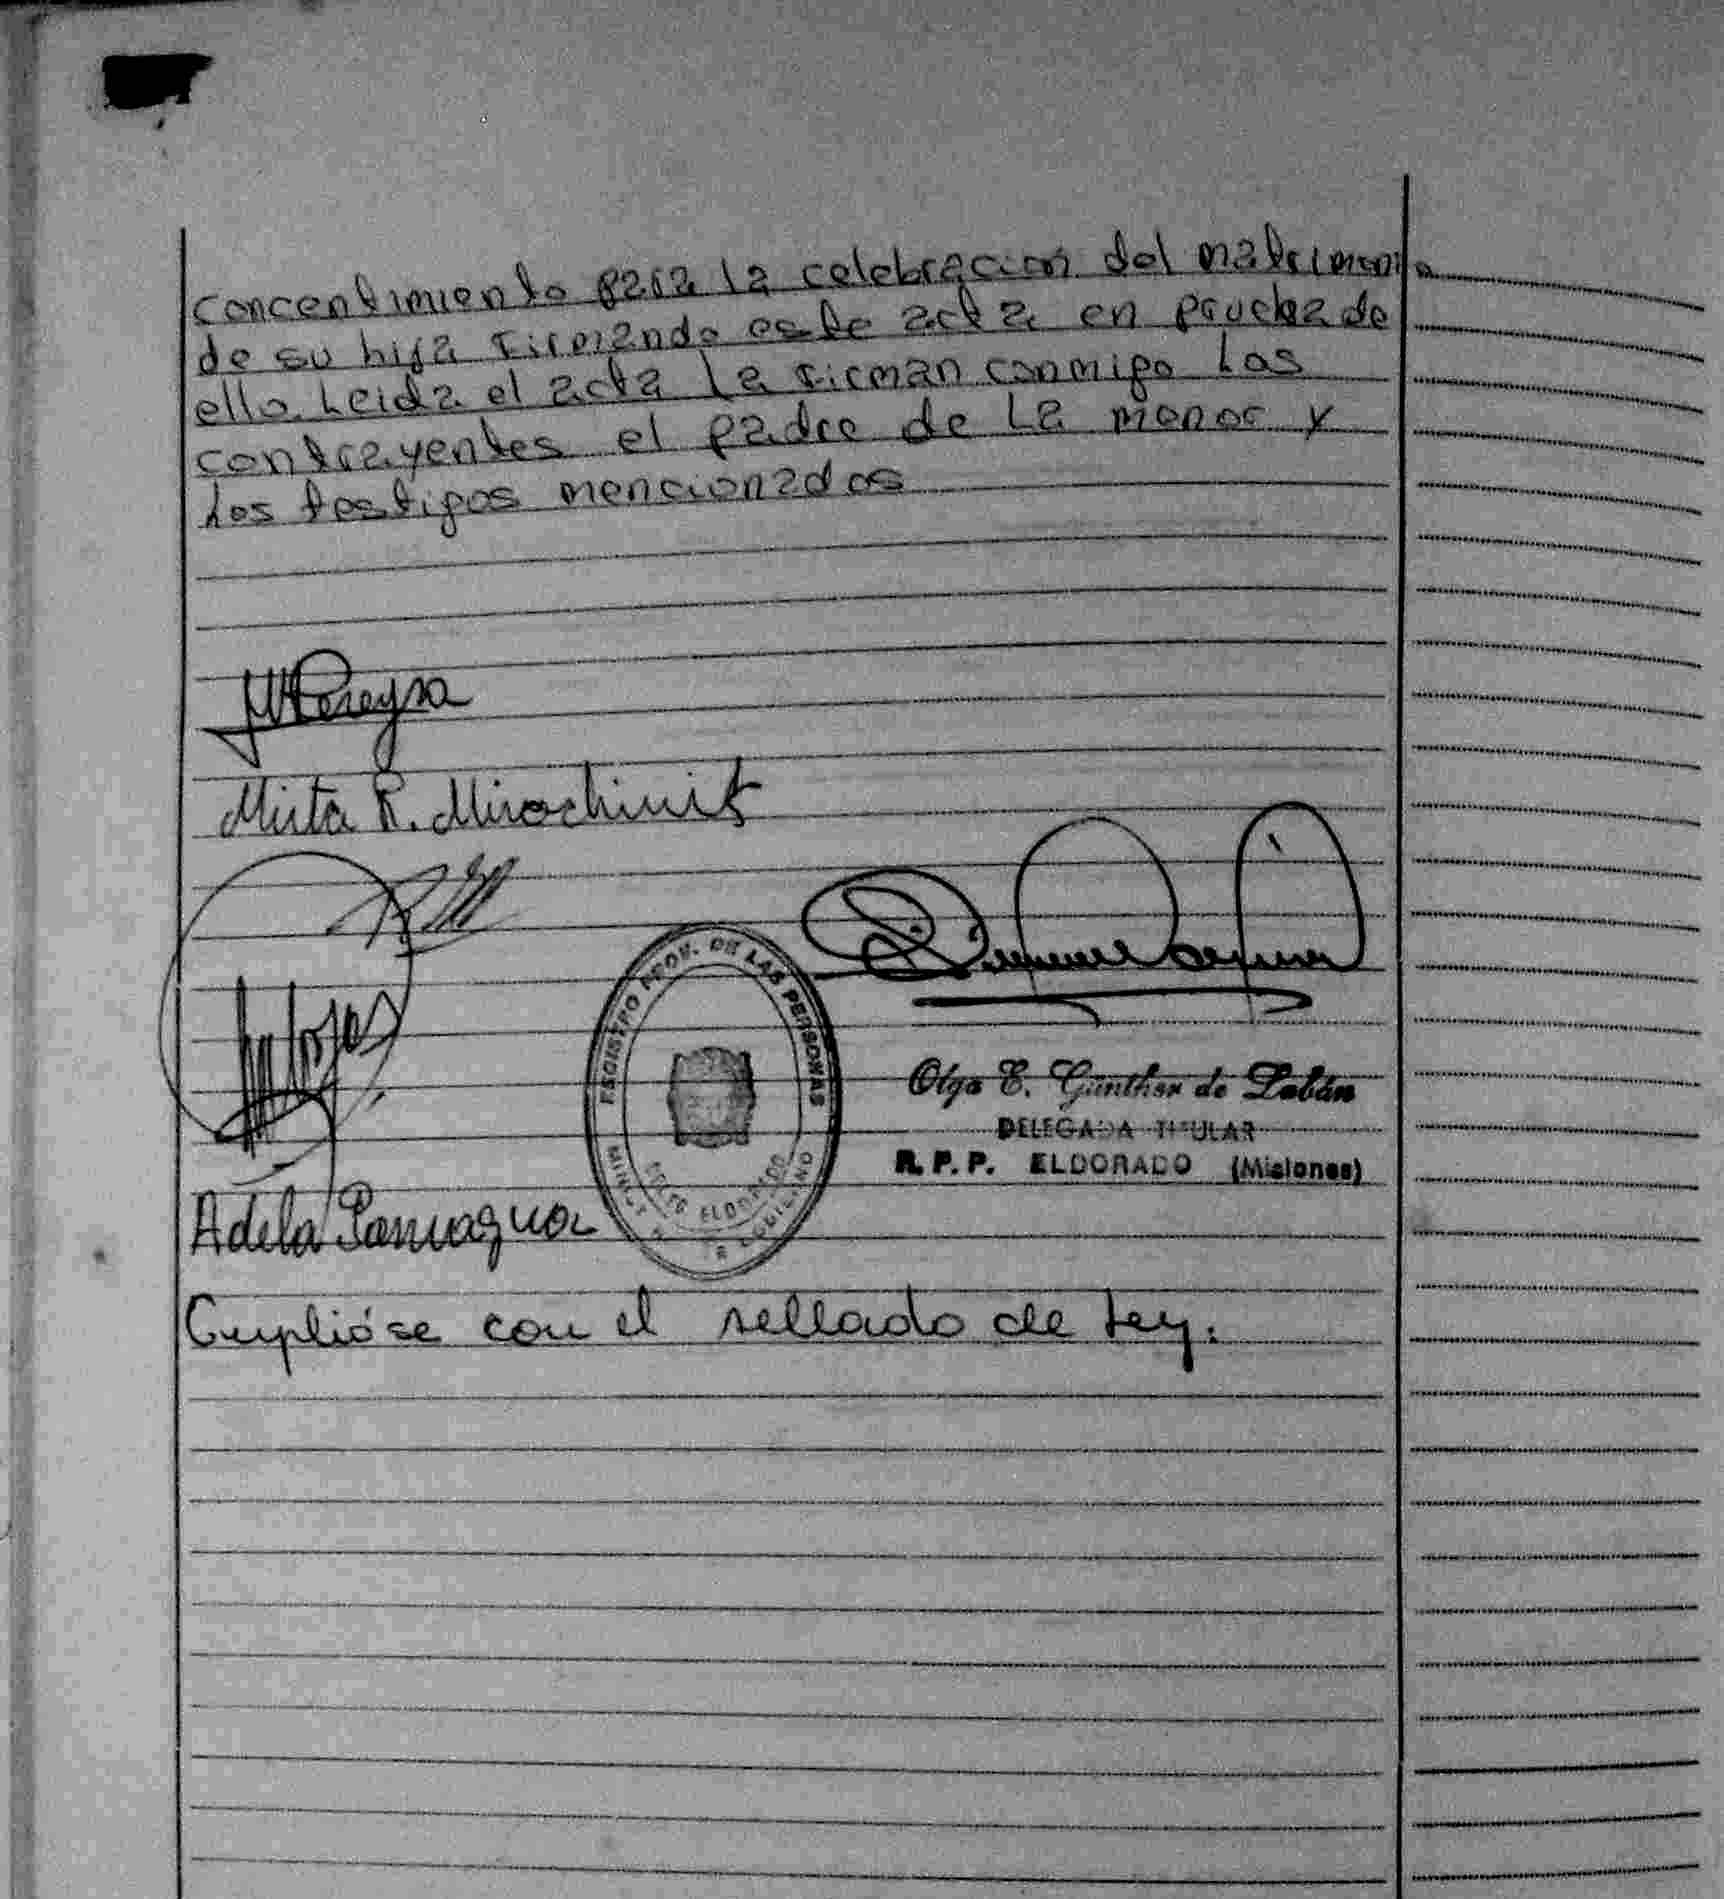 concentimiento para la celebracion del matrimonio
de su hija firmando este acta en prueba de
ello. Leida el acta La firman conmigo Los
contrayentes el padre de La menor y
Los testigos mencionados
Pereyra
Mirta R.
Rojas
REGISTRO PROV. DE LAS PERSONAS
ELDORADO
Olga E. Günther de
DELEGADA TITULAR
R. P. P. ELDORADO (Misiones)
Adela Paniagua
Cumplióse con el sellado de Ley.